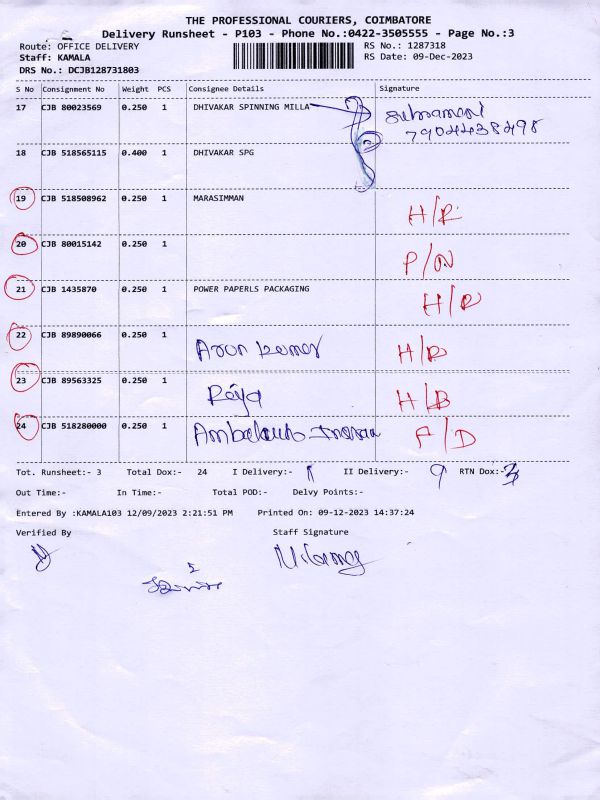 THE PROFESSIONAL COURIERS, COIMBATORE
Delivery Runsheet - P103 - Phone No.:0422-3505555 - Page No.:3
Route: OFFICE DELIVERY RS No.: 1287318
Staff: KAMALA RS Date: 09-Dec-2023
DRS No.: DCJB128731803
S No Consignment No Weight PCS Consignee Details Signature
17 CJB 80023569 0.250 1 DHIVAKAR SPINNING MILLA Subramani
7904438498
18 CJB 518565115 0.400 1 DHIVAKAR SPG
19 CJB 518508962 0.250 1 MARASIMMAN H/R
20 CJB 80015142 0.250 1 P/N
21 CJB 1435870 0.250 1 POWER PAPERLS PACKAGING H/R
22 CJB 89890066 0.250 1 Arun kumar H/R
23 CJB 89563325 0.250 1 Raja H/B
24 CJB 518280000 0.250 1 F/D
Tot. Runsheet:- 3 Total Dox:- 24 I Delivery:- II Delivery:- 9 RTN Dox:- 3
Out Time:- In Time:- Total POD:- Delvy Points:-
Entered By :KAMALA103 12/09/2023 2:21:51 PM Printed On: 09-12-2023 14:37:24
Verified By Staff Signature